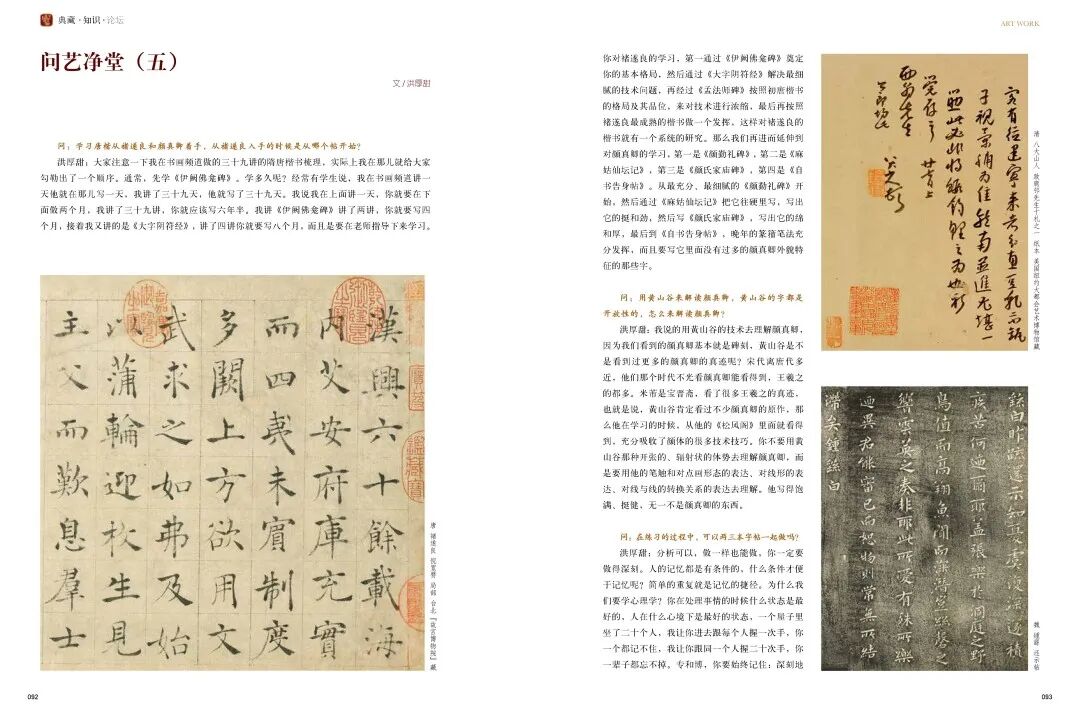 典藏·知识·论坛
ART WORK
问艺净堂（五）
文 / 洪厚甜
问：学习唐楷从褚遂良和颜真卿着手，从褚遂良入手的时候是从哪个帖开始？
洪厚甜：大家注意一下我在书画频道做的三十九讲的隋唐楷书梳理，实际上我在那儿就给大家
勾勒出了一个顺序。通常，先学《伊阙佛龛碑》。学多久呢？经常有学生说，我在书画频道讲一
天他就在那儿写一天，我讲了三十九天，他就写了三十九天。我说我在上面讲一天，你就要在下
面做两个月，我讲了三十九讲，你就应该写六年半。我讲《伊阙佛龛碑》讲了两讲，你就要写四
个月，接着我又讲的是《大字阴符经》，讲了四讲你就要写八个月，而且是要在老师指导下来学习。
漢興六十餘載海
内艾安府庫充實
而四夷未賓制度
多闕上方欲用文
武求之如弗及始
以蒲輪迎枚生見
主父而歎息羣士
唐 褚遂良 倪宽赞 局部 台北『故宫博物院』藏
092
你对褚遂良的学习，第一通过《伊阙佛龛碑》奠定
你的基本格局，然后通过《大字阴符经》解决最细
腻的技术问题，再经过《孟法师碑》按照初唐楷书
的格局及其品位，来对技术进行浓缩，最后再按照
褚遂良最成熟的楷书做一个发挥。这样对褚遂良的
楷书就有一个系统的研究。那么我们再进而延伸到
对颜真卿的学习，第一是《颜勤礼碑》，第二是《麻
姑仙坛记》，第三是《颜氏家庙碑》，第四是《自
书告身帖》。从最充分、最细腻的《颜勤礼碑》开
始，然后通过《麻姑仙坛记》把它往硬里写，写出
它的挺和劲，然后写《颜氏家庙碑》，写出它的绵
和厚，最后到《自书告身帖》，晚年的篆籀笔法充
分发挥，而且要写它里面没有过多的颜真卿外貌特
征的那些字。
问：用黄山谷来解读颜真卿，黄山谷的字都是
开放性的，怎么来解读颜真卿？
洪厚甜：我说的用黄山谷的技术去理解颜真卿，
因为我们看到的颜真卿基本就是碑刻，黄山谷是不
是看到过更多的颜真卿的真迹呢？宋代离唐代多
近，他们那个时代不光看颜真卿能看得到，王羲之
的都多。米芾是宝晋斋，看了很多王羲之的真迹，
也就是说，黄山谷肯定看过不少颜真卿的原作，那
么他在学习的时候，从他的《松风阁》里面就看得
到，充分吸收了颜体的很多技术技巧。你不要用黄
山谷那种开张的、辐射状的体势去理解颜真卿，而
是要用他的笔触和对点画形态的表达、对线形的表
达、对线与线的转换关系的表达去理解。他写得饱
满、挺健，无一不是颜真卿的东西。
问：在练习的过程中，可以两三本字帖一起做吗？
洪厚甜：分析可以，做一样也能做，你一定要
做得深刻。人的记忆都是有条件的，什么条件才便
于记忆呢？简单的重复就是记忆的捷径。为什么我
们要学心理学？你在处理事情的时候什么状态是最
好的，人在什么心境下是最好的状态，一个屋子里
坐了二十个人，我让你进去跟每个人握一次手，你
一个都记不住，我让你跟同一个人握二十次手，你
一辈子都忘不掉。专和博，你要始终记住：深刻地
清 八大山人 致鹿邨先生手札之一 纸本 美国纽约大都会艺术博物馆藏
魏 钟繇 还示帖
093